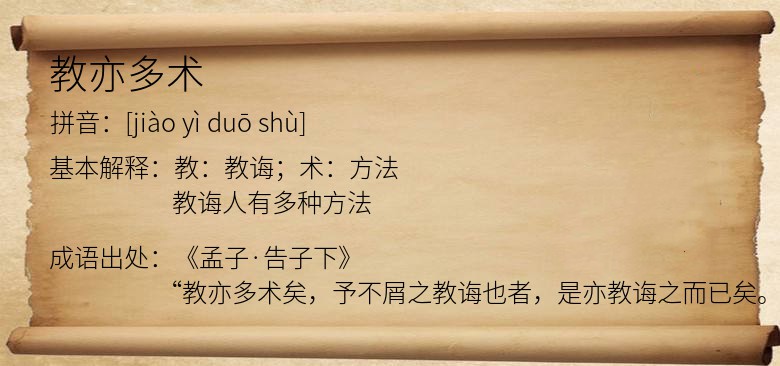 教亦多术
拼音：[jiào yì duō shù]
基本解释：教：教诲；术：方法
教诲人有多种方法
成语出处：《孟子·告子下》
“教亦多术矣，予不屑之教诲也者，是亦教诲之而已矣。